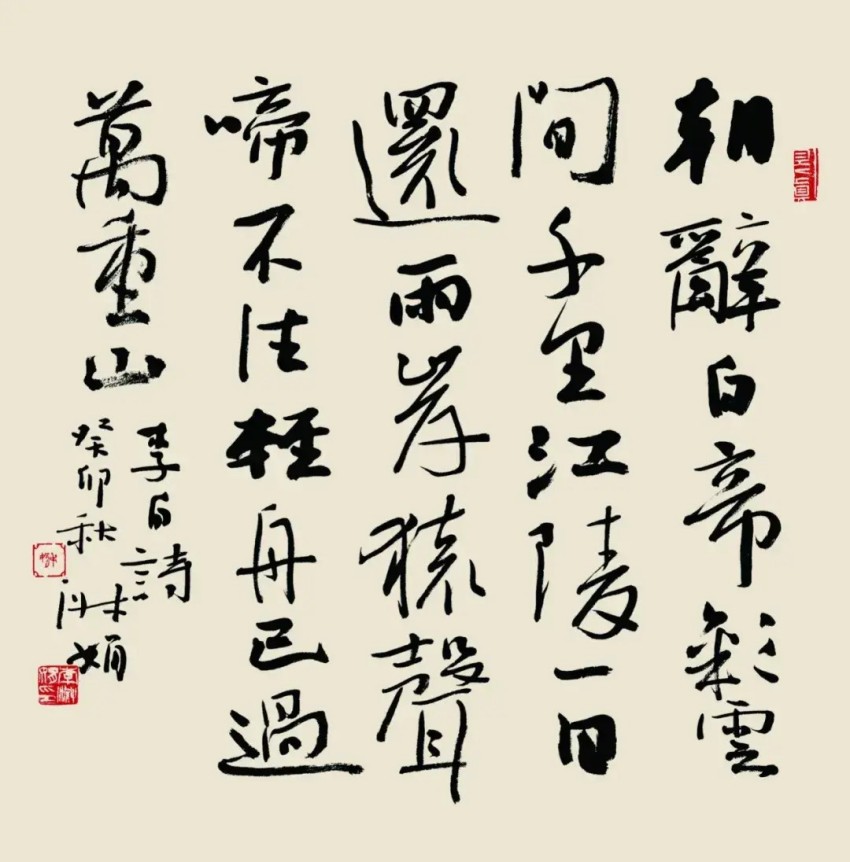 朝辭白帝彩雲
間千里江陵一日
還兩岸猿聲
啼不住輕舟已過
萬重山
李白詩
癸卯秋
娟